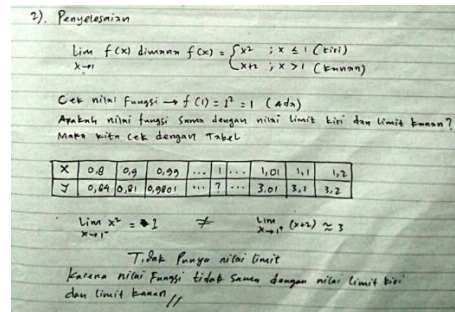 2). Penyelesaian
Lim f(x) dimana f(x) = { x² ; x ≤ 1 (kiri)
x→1 x+2 ; x > 1 (kanan)
Cek nilai fungsi → f(1) = 1² = 1 (Ada)
Apakah nilai fungsi sama dengan nilai limit kiri dan limit kanan?
Maka kita cek dengan Tabel
X 0,8 0,9 0,99 ... 1 ... 1,01 1,1 1,2
y 0,64 0,81 0,9801 ... ? ... 3,01 3,1 3,2
Lim x² = 1 ≠ Lim (x+2) ≈ 3
x→1⁻ x→1⁺
Tidak Punya nilai limit
karena nilai Fungsi tidak sama dengan nilai limit kiri
dan limit kanan //